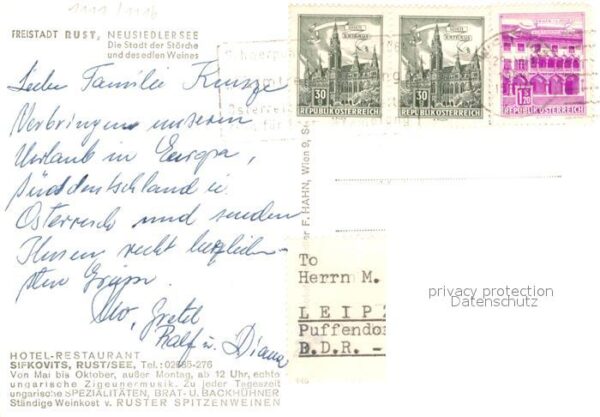 1111/1116
FREISTADT RUST, NEUSIEDLERSEE
Die Stadt der Störche
und des edlen Weines
Liebe Familie
Verbringen unseren
Urlaub in Europa,
Süddeutschland u.
Österreich und senden
Ihnen recht herzlich-
sten Grüsse.
Gretel
Ralf u. Diana
HOTEL-RESTAURANT
SIFKOVITS, RUST/SEE, Tel.: 02685-276
Von Mai bis Oktober, außer Montag, ab 12 Uhr, echte
ungarische Zigeunermusik. Zu jeder Tageszeit
ungarische SPEZIALITÄTEN, BRAT- U. BACKHÜHNER
Ständige Weinkost v. RUSTER SPITZENWEINEN
WIEN
RATHAUS
30
REPUBLIK ÖSTERREICH
WIEN
RATHAUS
30
REPUBLIK ÖSTERREICH
1 S 20
REPUBLIK ÖSTERREICH
F. HAHN, Wien 9,
To
Herrn M.
LEIPZ
Puffendo
B.D.R. -
privacy protection
Datenschutz